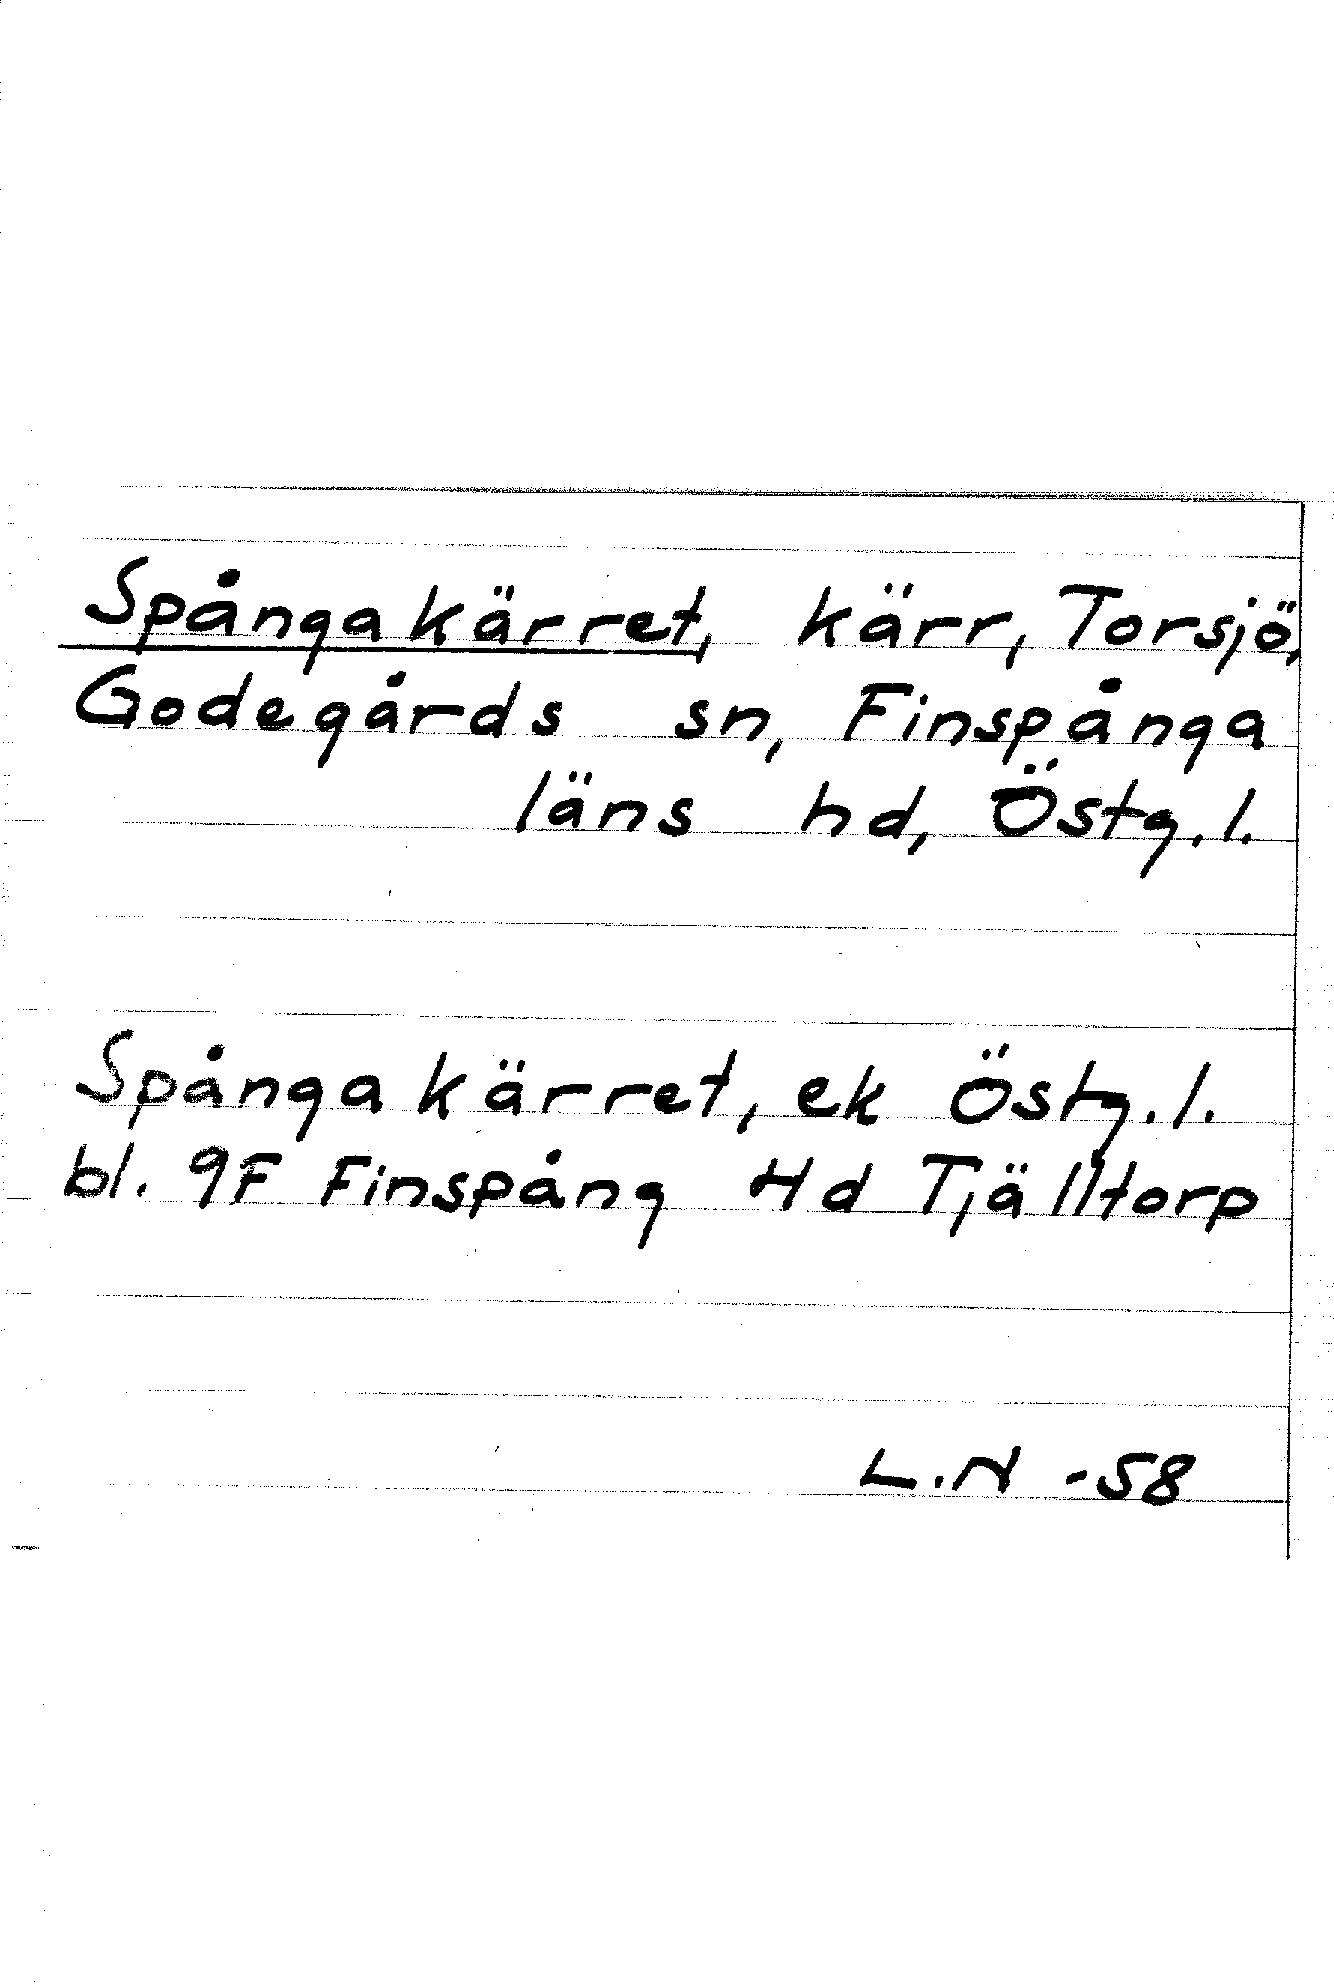 Spångakärret, kärr, Torsjö,
Godegårds sn, Finspånga
läns hd, Östg.l.
Spångakärret, ek Östg.l.
bl. 9F Finspång 4d Tjälltorp
L.N -58